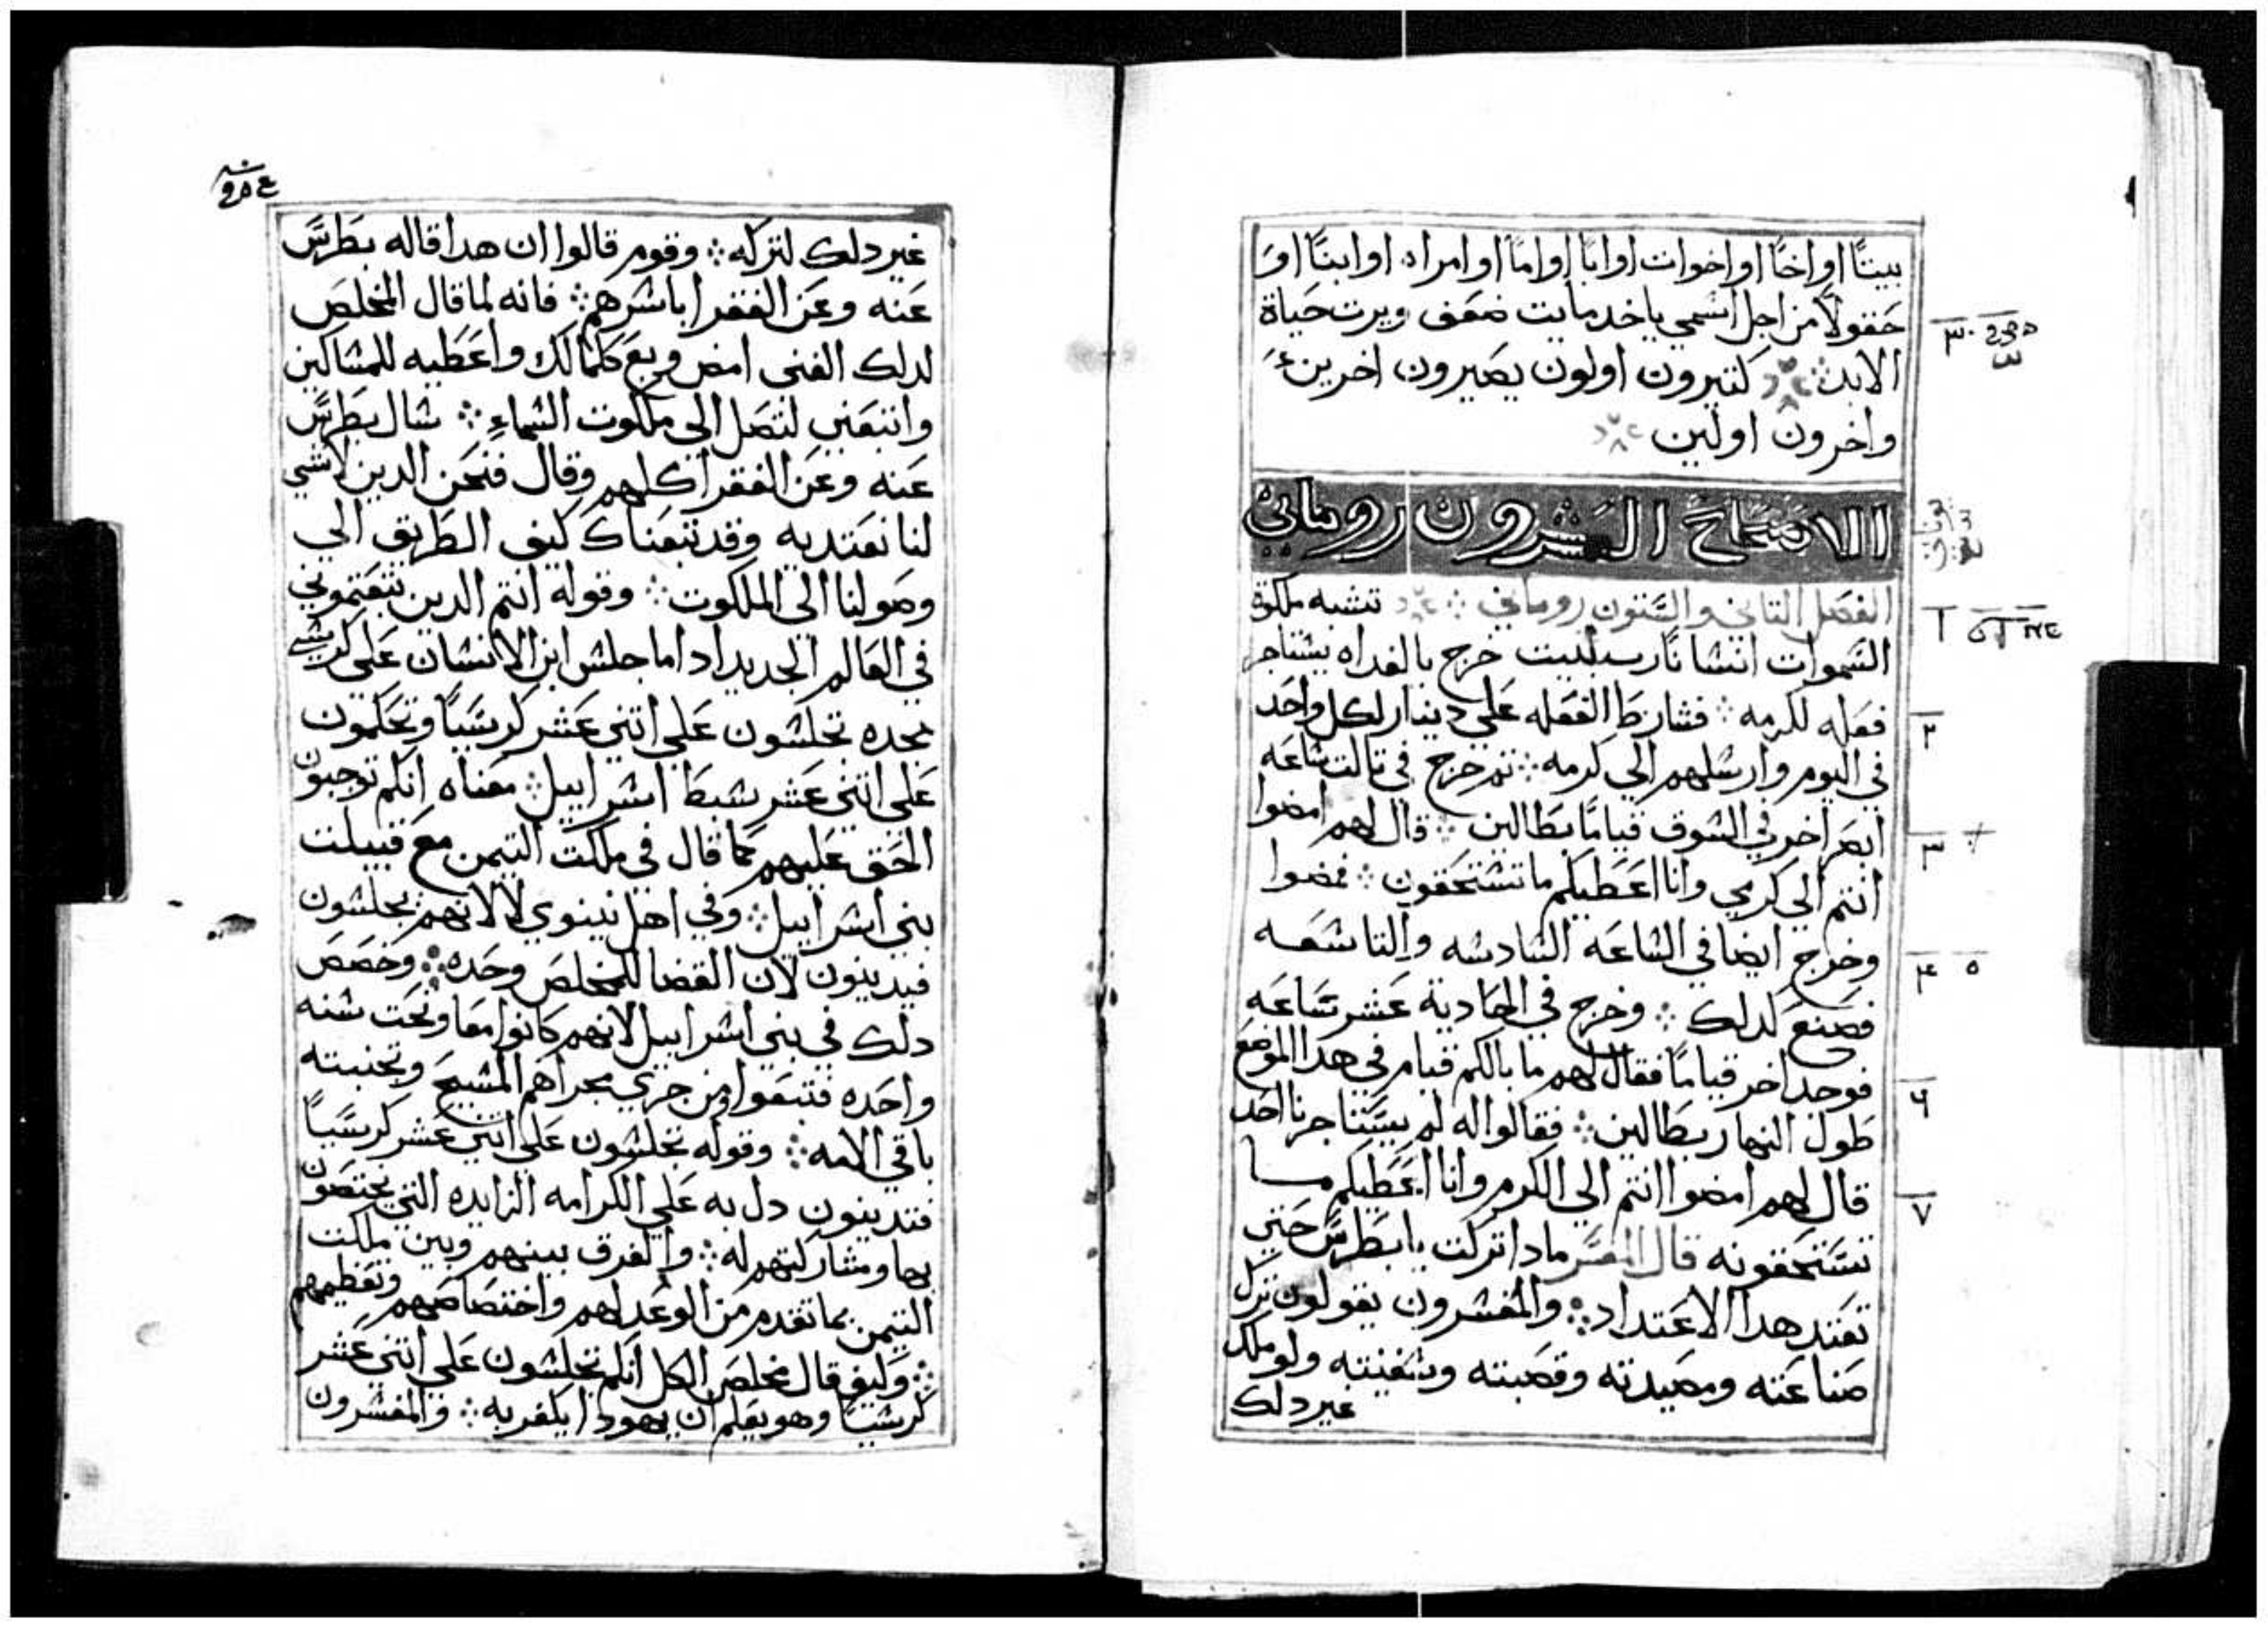 بيتًا او اخًا او اخوات او ابًا او امًا او امراه او ابنًا او
حقولاً من اجل اسمي ياخد مايت ضعف ويرت حياة
الابد ܀ كتيرون اولون يصيرون اخرين
واخرون اولين
الاصحاح العشرون روماني
الفصل التاني والستون روماني ܀ تشبه ملكوة
السموات انسانًا رب بيت خرج بالغداه يستاجر
فعله لكرمه ܀ فشارط الفعله علي دينار لكل واحد
في اليوم وارسلهم الي كرمه ܀ تم خرج في تالت ساعه
ابصر اخر في السوق قيامًا بطالين ܀ قال لهم امضوا
انتم الي كرمي وانا اعطيكم ما تستحقون ܀ فمضوا
وخرج ايضا في الساعه السادسه والتاسعه
فصنع كدلك ܀ وخرج في الحادية عشر ساعه
فوجد اخر قيامًا فقال لهم ما بالكم قيام في هدا الموضع
طول النهار بطالين ܀ فقالوا له لم يستاجرنا احد
قال لهم امضوا انتم الي الكرم وانا اعطيكم ما
تستحقونه قال المفسر مادا تركت يا بطرس حتي
تعتد هدا الاعتداد ܀ والمفسرون يقولون ترك
صناعته ومصيدته وقصبته وسفينته ولو ملك
غير دلك
٣٠
٢
٣
٤ ٥
٦
٧
غير دلك لتركه ܀ وقوم قالوا ان هدا قاله بطرس
عنه وعن الفقرا باسرهم ܀ فانه لما قال المخلص
لدلك الغني امض وبع كلما لك واعطيه للمساكين
واتبعني لتصل الي ملكوت السماء ܀ سال بطرس
عنه وعن الفقرا كلهم وقال فنحن الدين لا شي
لنا نعتد به وقد تبعناك كيف الطريق الي
وصولنا الي الملكوت ܀ وقوله انتم الدين تبعتموني
في العالم الجديد ادا ما جلس ابن الانسان علي كرسي
مجده تجلسون علي اتني عشر كرسيًا وتحكمون
علي اتني عشر سبط اسراييل ܀ معناه انكم توجبون
الحق عليهم كما قال في ملكت التيمن مع قبيلت
بني اسراييل ܀ وفي اهل نينوي لا لانهم يجلسون
فيدينون لان القضا للمخلص وحده ܀ وخصص
دلك في بني اسراييل لانهم كانوا معا وتحت سنه
واحده فتبعوا من جري مجراهم المسيح وتجنبته
باقي الامه ܀ وقوله تجلسون علي اتني عشر كرسيًا
فتدينون دل به علي الكرامه الزايده التي يختصون
بها ومشاركتهم له ܀ والفرق بينهم وبين ملكت
التيمن بما تقدم من الوعد لهم واختصاصهم وتعظيمهم
܀ وكيف قال مخلص الكل انكم تجلسون علي اتني عشر
كرسيًا وهو يعلم ان يهودا يكفر به ܀ والمفسرون